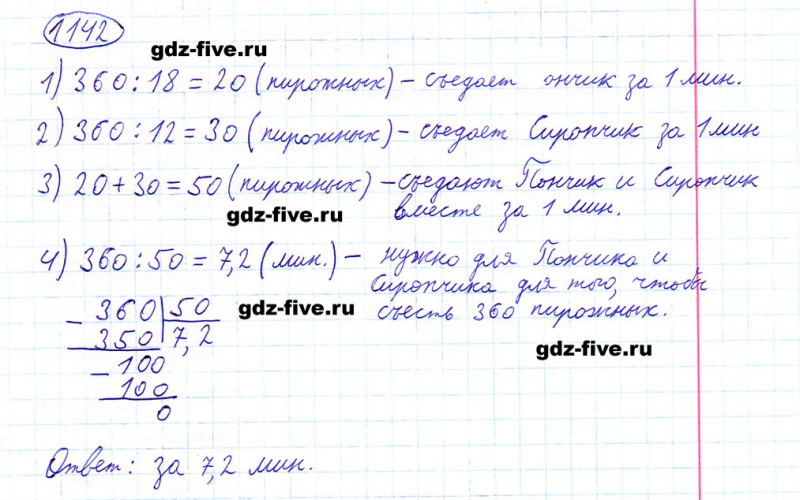 1142
gdz-five.ru
1) 360 : 18 = 20 (пирожных) – съедает ончик за 1 мин.
2) 360 : 12 = 30 (пирожных) – съедает Сиропчик за 1 мин
3) 20 + 30 = 50 (пирожных) – съедают Пончик и Сиропчик
вместе за 1 мин.
gdz-five.ru
4) 360 : 50 = 7,2 (мин.) – нужно для Пончика и
Сиропчика для того, чтобы
съесть 360 пирожных.
gdz-five.ru
– 360 | 50
350 | 7,2
– 100
100
0
gdz-five.ru
Ответ: за 7,2 мин.